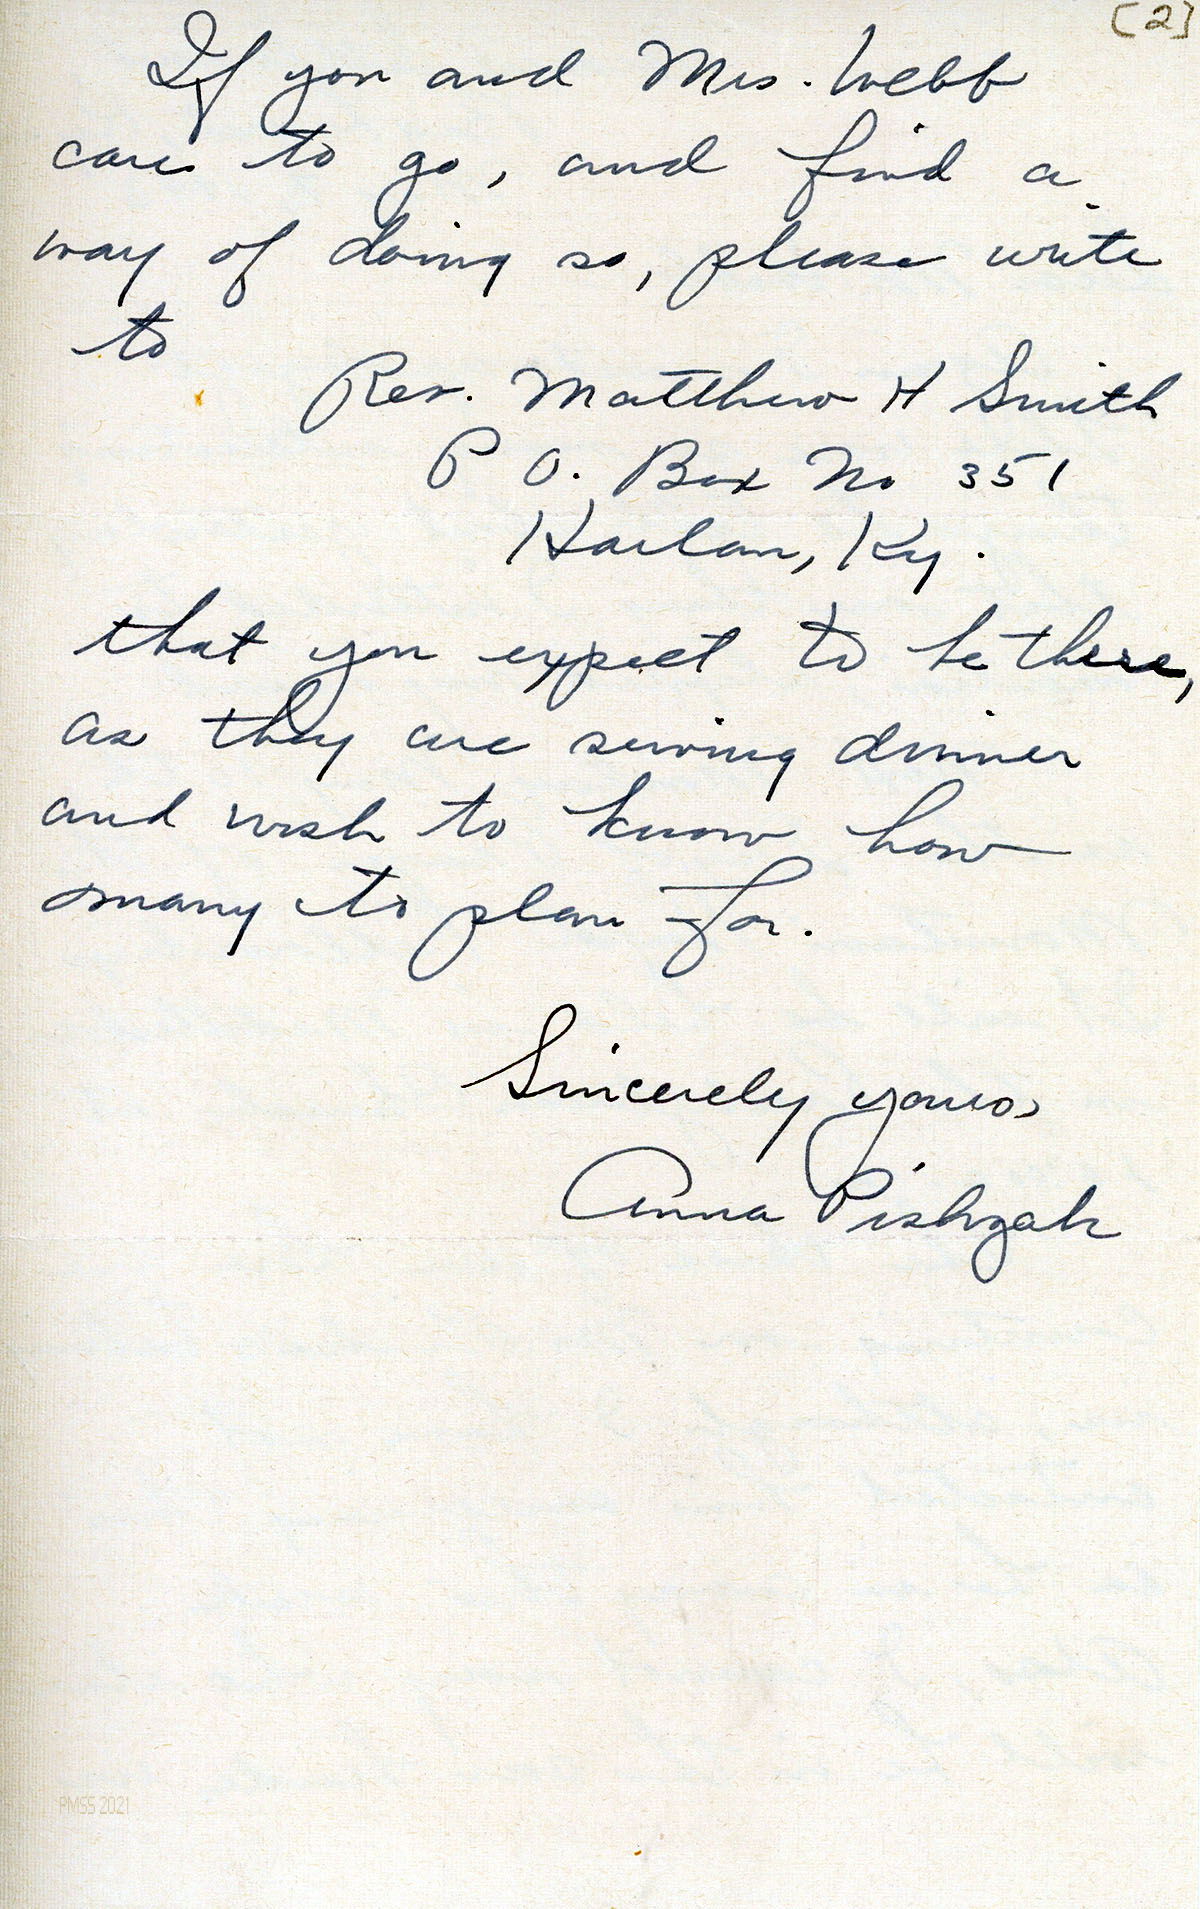 [2]
If you and Mrs. Webb
care to go, and find a
way of doing so, please write
to
Rev. Matthew H Smith
P O. Box No 351
Harlan, Ky.
that you expect to be there,
as they are serving dinner
and wish to know how
many to plan for.
Sincerely yours,
Anna Pishzak
PMSS 2021